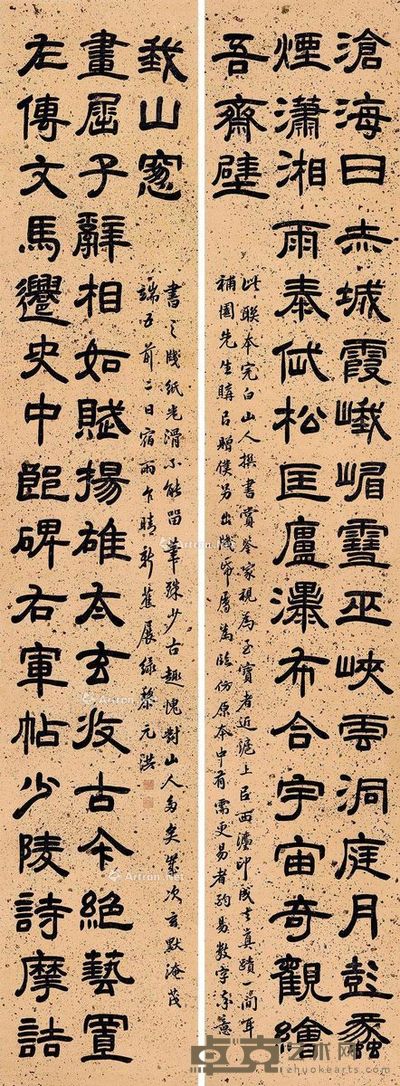 滄海日赤城霞峨嵋雪巫峽雲洞庭月彭蠡
煙瀟湘雨泰岱松匡廬瀑布合宇宙奇觀繪
吾齋壁
此聯本完白山人撰書賞鑒家視為至寶者近滬上以西法印成真蹟一
補園先生購以贈僕另出屬為臨仿原本中有需更易者酌易數字
左傳文馬遷史中郎碑右軍帖少陵詩摩詰
畫屈子辭相如賦揚雄太玄收古今絕藝置
我山窻
書之牋紙光滑不能留筆殊少古趣愧對山人多矣歲次玄黓淹茂
端五前二日宿雨乍晴新蕉展綠黎元洪
Artron.Net
卓克艺术网
zhuokearts.com